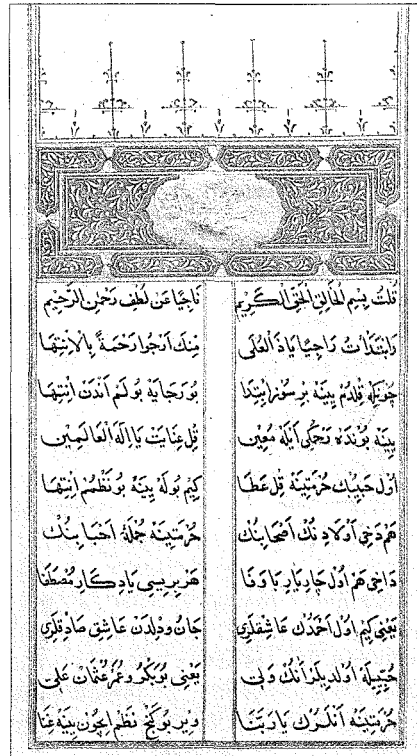 قُلْتُ بِسْمِ الْخَالِقِ الْحَقِّ الْكَرِيمْ نَاجِيًا عَنْ لُطْفِ رَحْمٰنِ الرَّحِيمْ
وَابْتَدَأْتُ رَاجِيًا يَاذَا الْعُلَى مِنْكَ اَرْجُوا رَحْمَةً بِالْاِنْتِهَا
چونكه قِلْدُمْ يِينَه بِرْ سُوزْ اِبْتِدَا بُو رَجَايَه بُولَمْ اَنْدَنْ اِنْتِهَا
يِينَه بُونْدَه رَحْمَتِي اَيْلَه مُعِينْ قِلْ عِنَايَتْ يَا اِلٰهَ الْعَالَمِينْ
اُولْ حَبِيبِكْ حُرْمَتِينَه قِلْ عَطَا كِيمْ بُولَه يِينَه بُو نَظْمُمْ اِنْتِهَا
هَمْ دَخِي اَوْلَادِنُكْ اَصْحَابِنُكْ حُرْمَتِينَه جُمْلَهٔ اَحْبَابِنُكْ
دَاخِي هَمْ اُولْ چَارِ يَارِ بَا وَفَا هَرْ بِرِيسِي يَادِكَارِ مُصْطَفَا
يَعْنِي كِيمْ اُولْ اَحْمَدُكْ عَاشِقْلَرِي جَانُ ودِلْدَنْ عَاشِقِ صَادِقْلَرِي
اُولْدِيلَرْ اَنُكْ وَلِي يَعْنِي بُوبَكْرُ و عُمَرْ عُثْمَانْ عَلِي
حُرْمَتِينَه اَنْلَرُكْ يَارَبَّنَا وِيرْ بُو كَنْجِ نَظْمْ اِيچُونْ يِينَه غِنَا